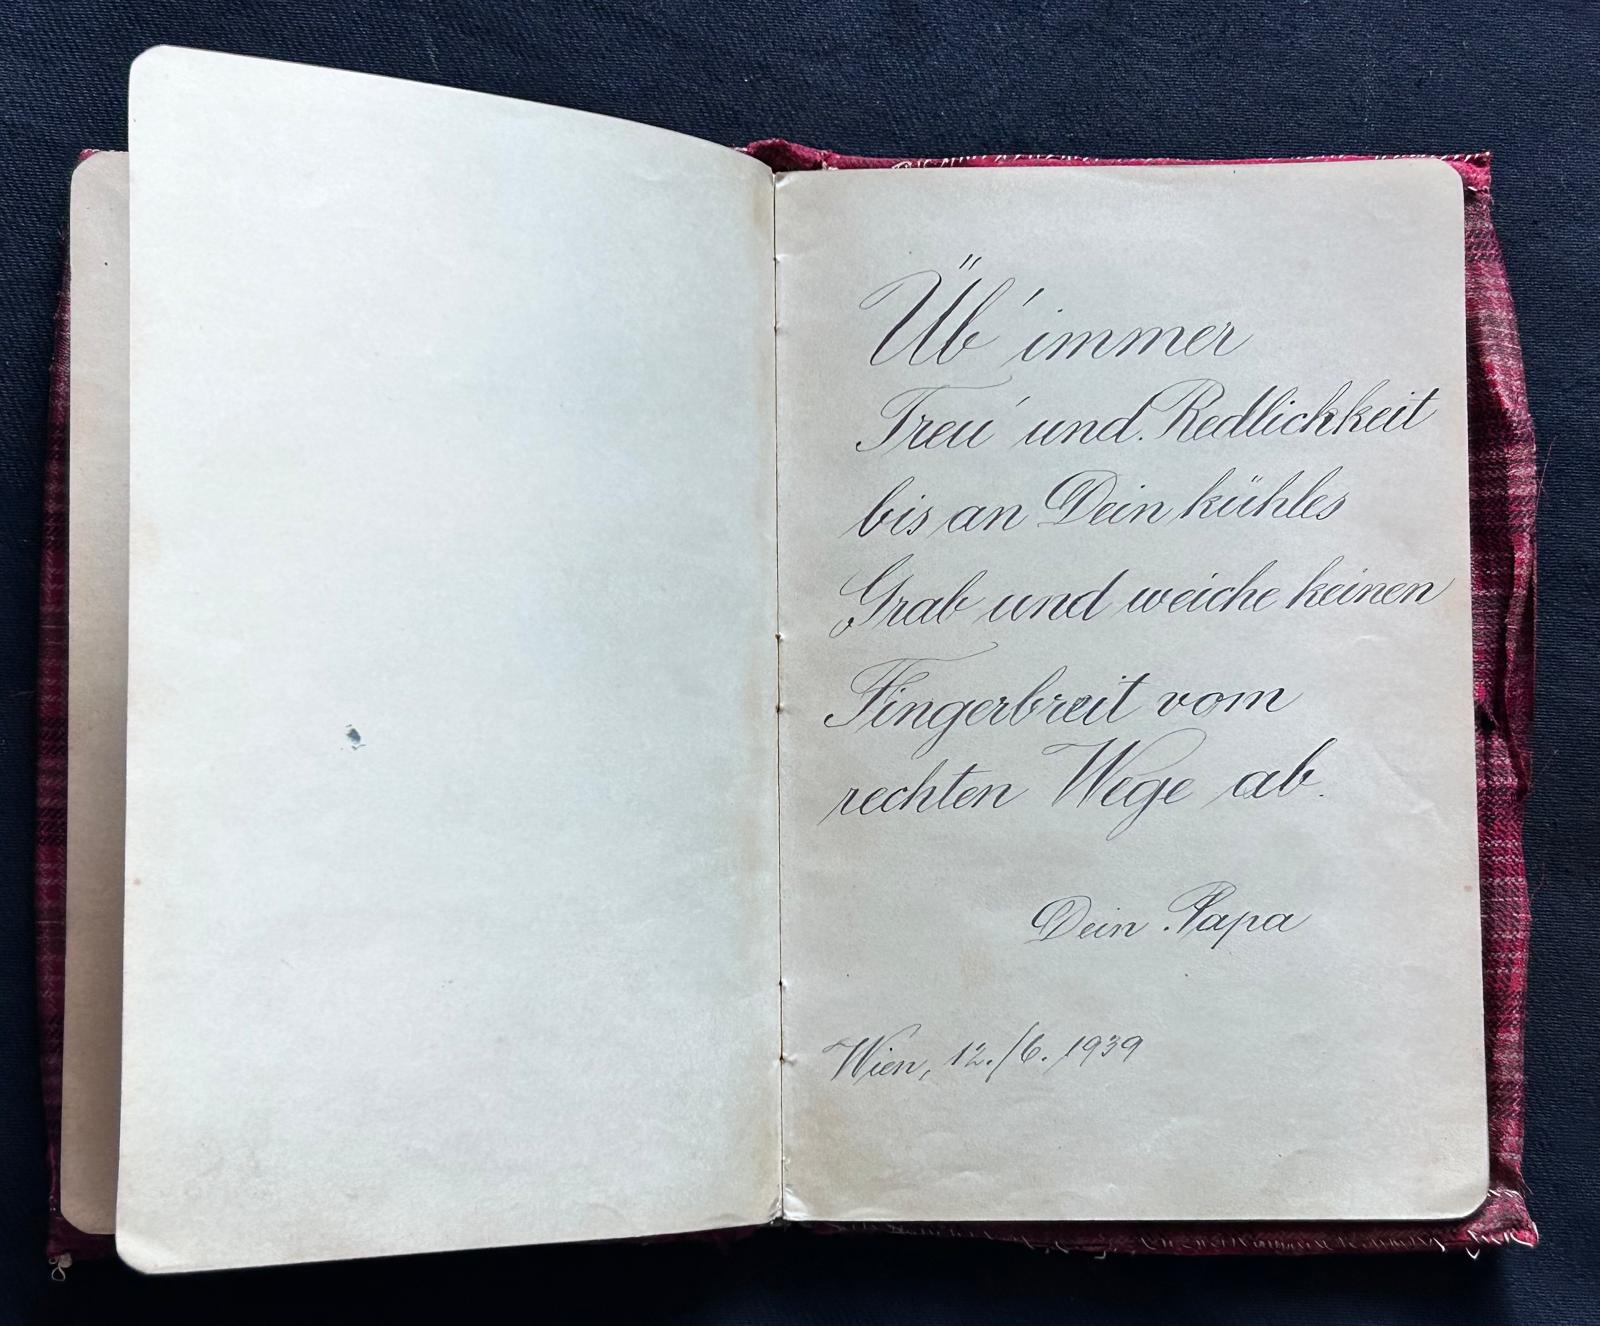 Üb' immer
Treu' und Redlichkeit
bis an Dein kühles
Grab und weiche keinen
Fingerbreit vom
rechten Wege ab.
Dein Papa
Wien, 12./6. 1939